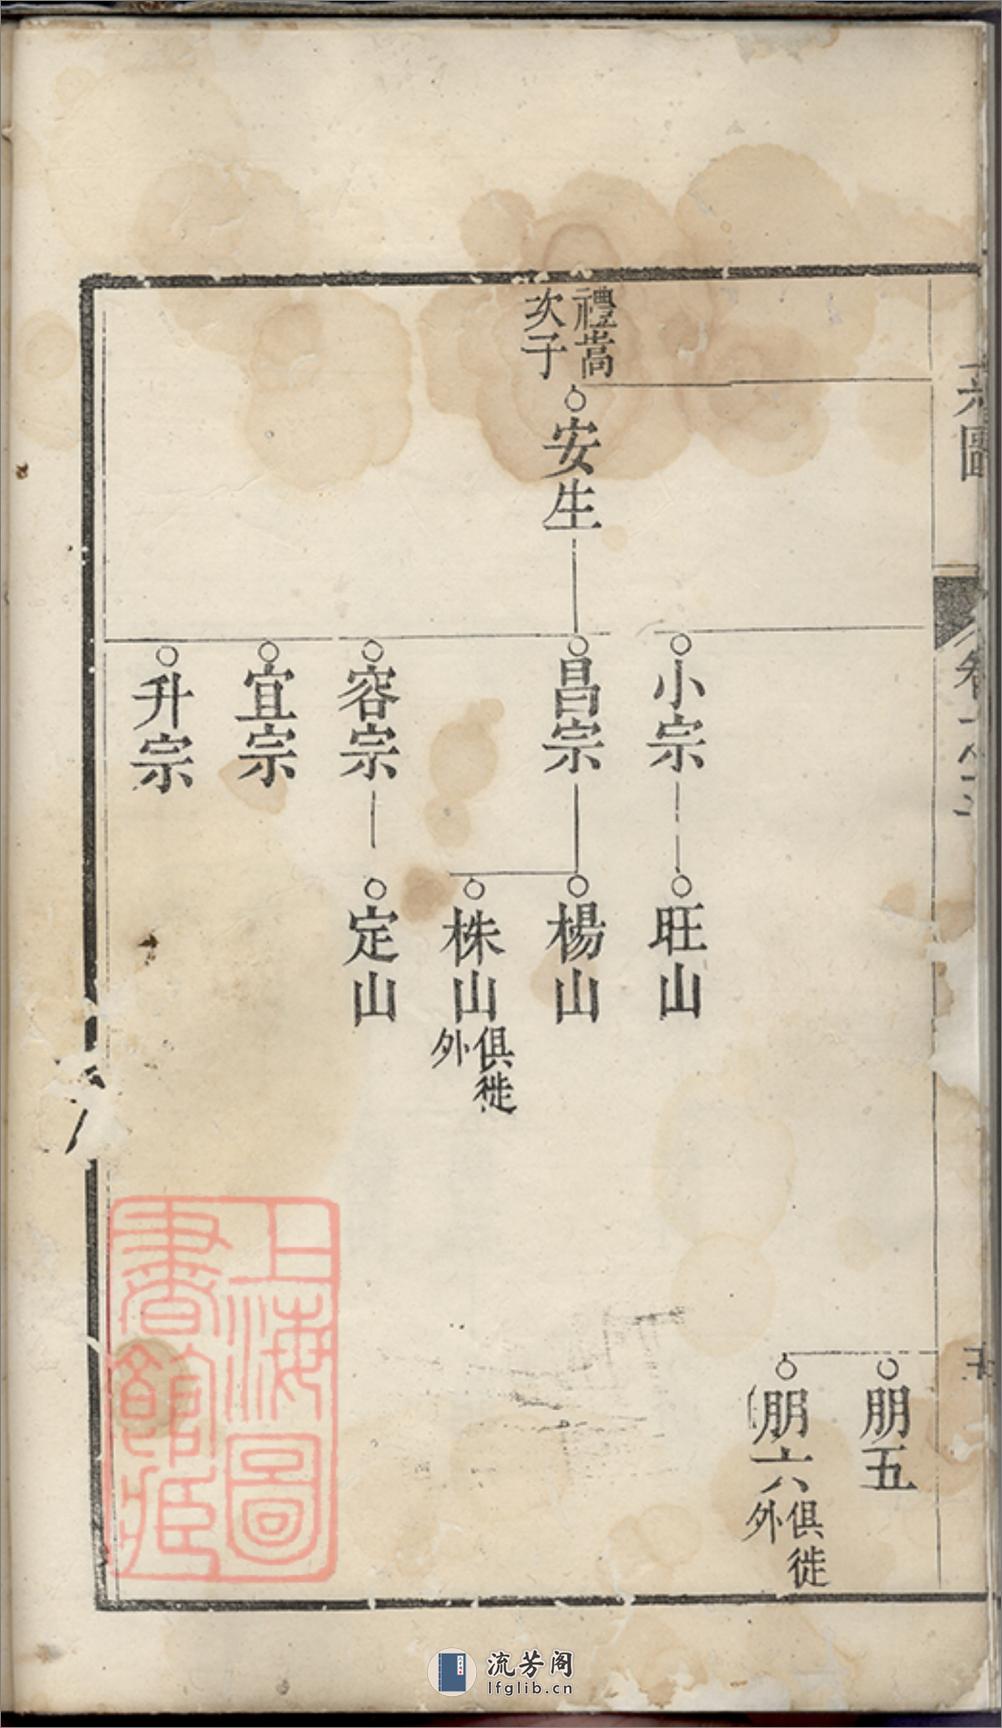 系圖
卷
五
朋五
朋六
俱徙
外
小宗
旺山
禮嵩
次子
安生
昌宗
楊山
株山
俱徙
外
容宗
定山
宜宗
升宗
上海圖
書館藏
流芳阁
lfglib.cn